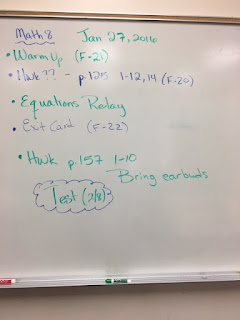 Math 8 Jan 27, 2016
• Warm Up (F-21)
• Hwk ?? - p.125 1-12, 14 (F-20)
• Equations Relay
• Exit Card (F-22)
• Hwk p.157 1-10
Bring earbuds
Test (2/8)